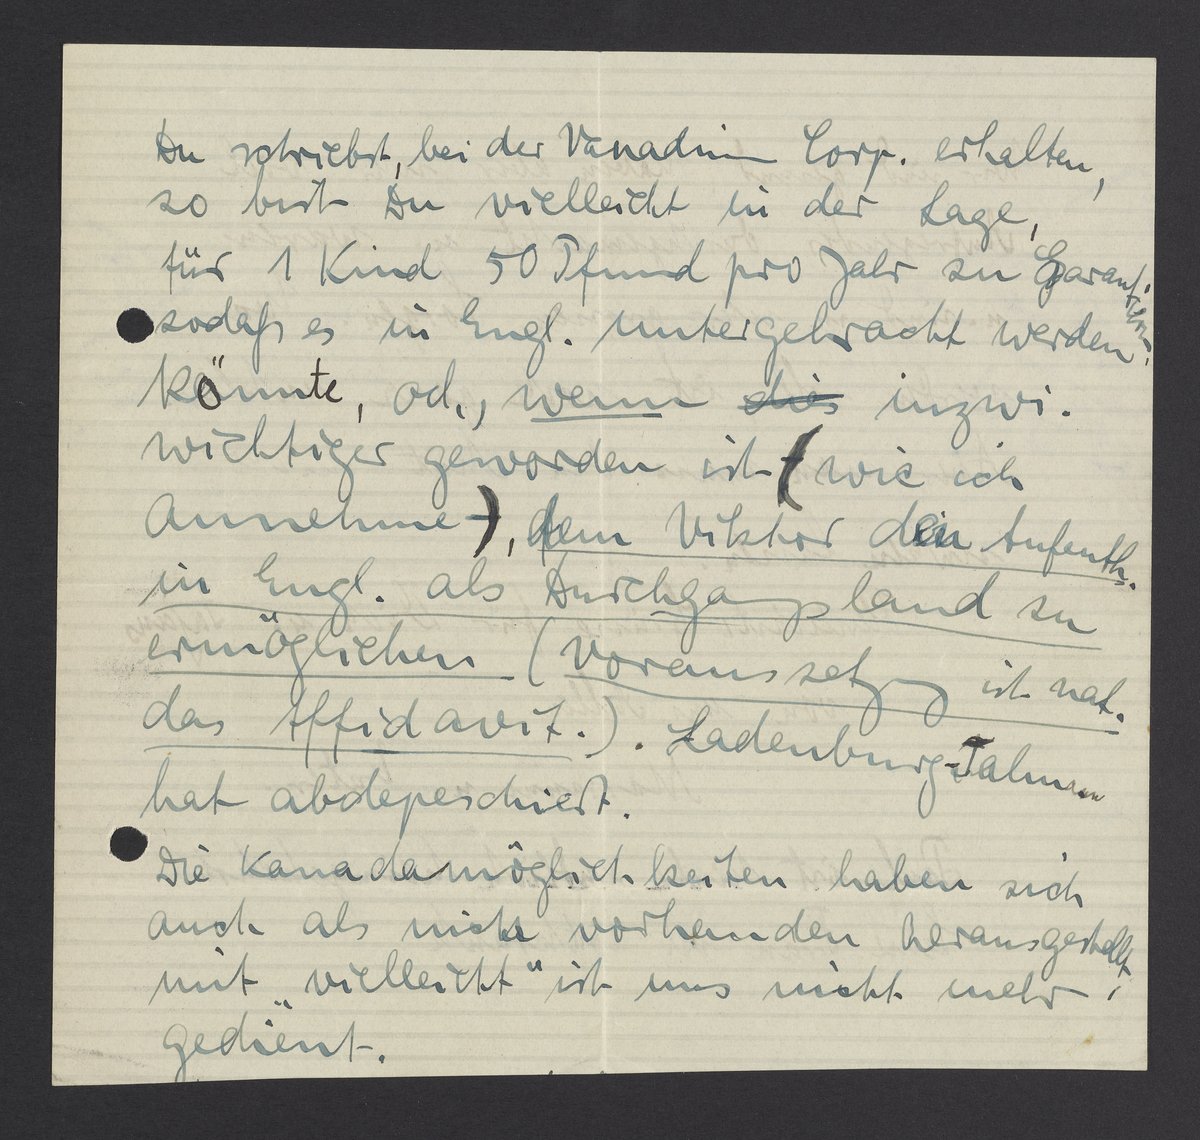 Du schriebst, bei der Vanadium Corp. erhalten,
so bist Du vielleicht in der Lage,
für 1 Kind 50 Pfund pro Jahr zu Garantieren,
sodaß es in Engl. untergebracht werden
könnte, od., wenn dies inzwi.
wichtiger geworden ist (wie ich
annehme), dem Viktor den Aufenth.
in Engl. als Durchgangsland zu
ermöglichen (Voraussetzung ist nat.
das Affidavit.). Ladenburg-Talmann
hat abdepeschiert.
Die Kanadamöglichkeiten haben sich
auch als nicht vorhanden herausgestellt,
mit „vielleicht" ist uns nicht mehr
gedient.